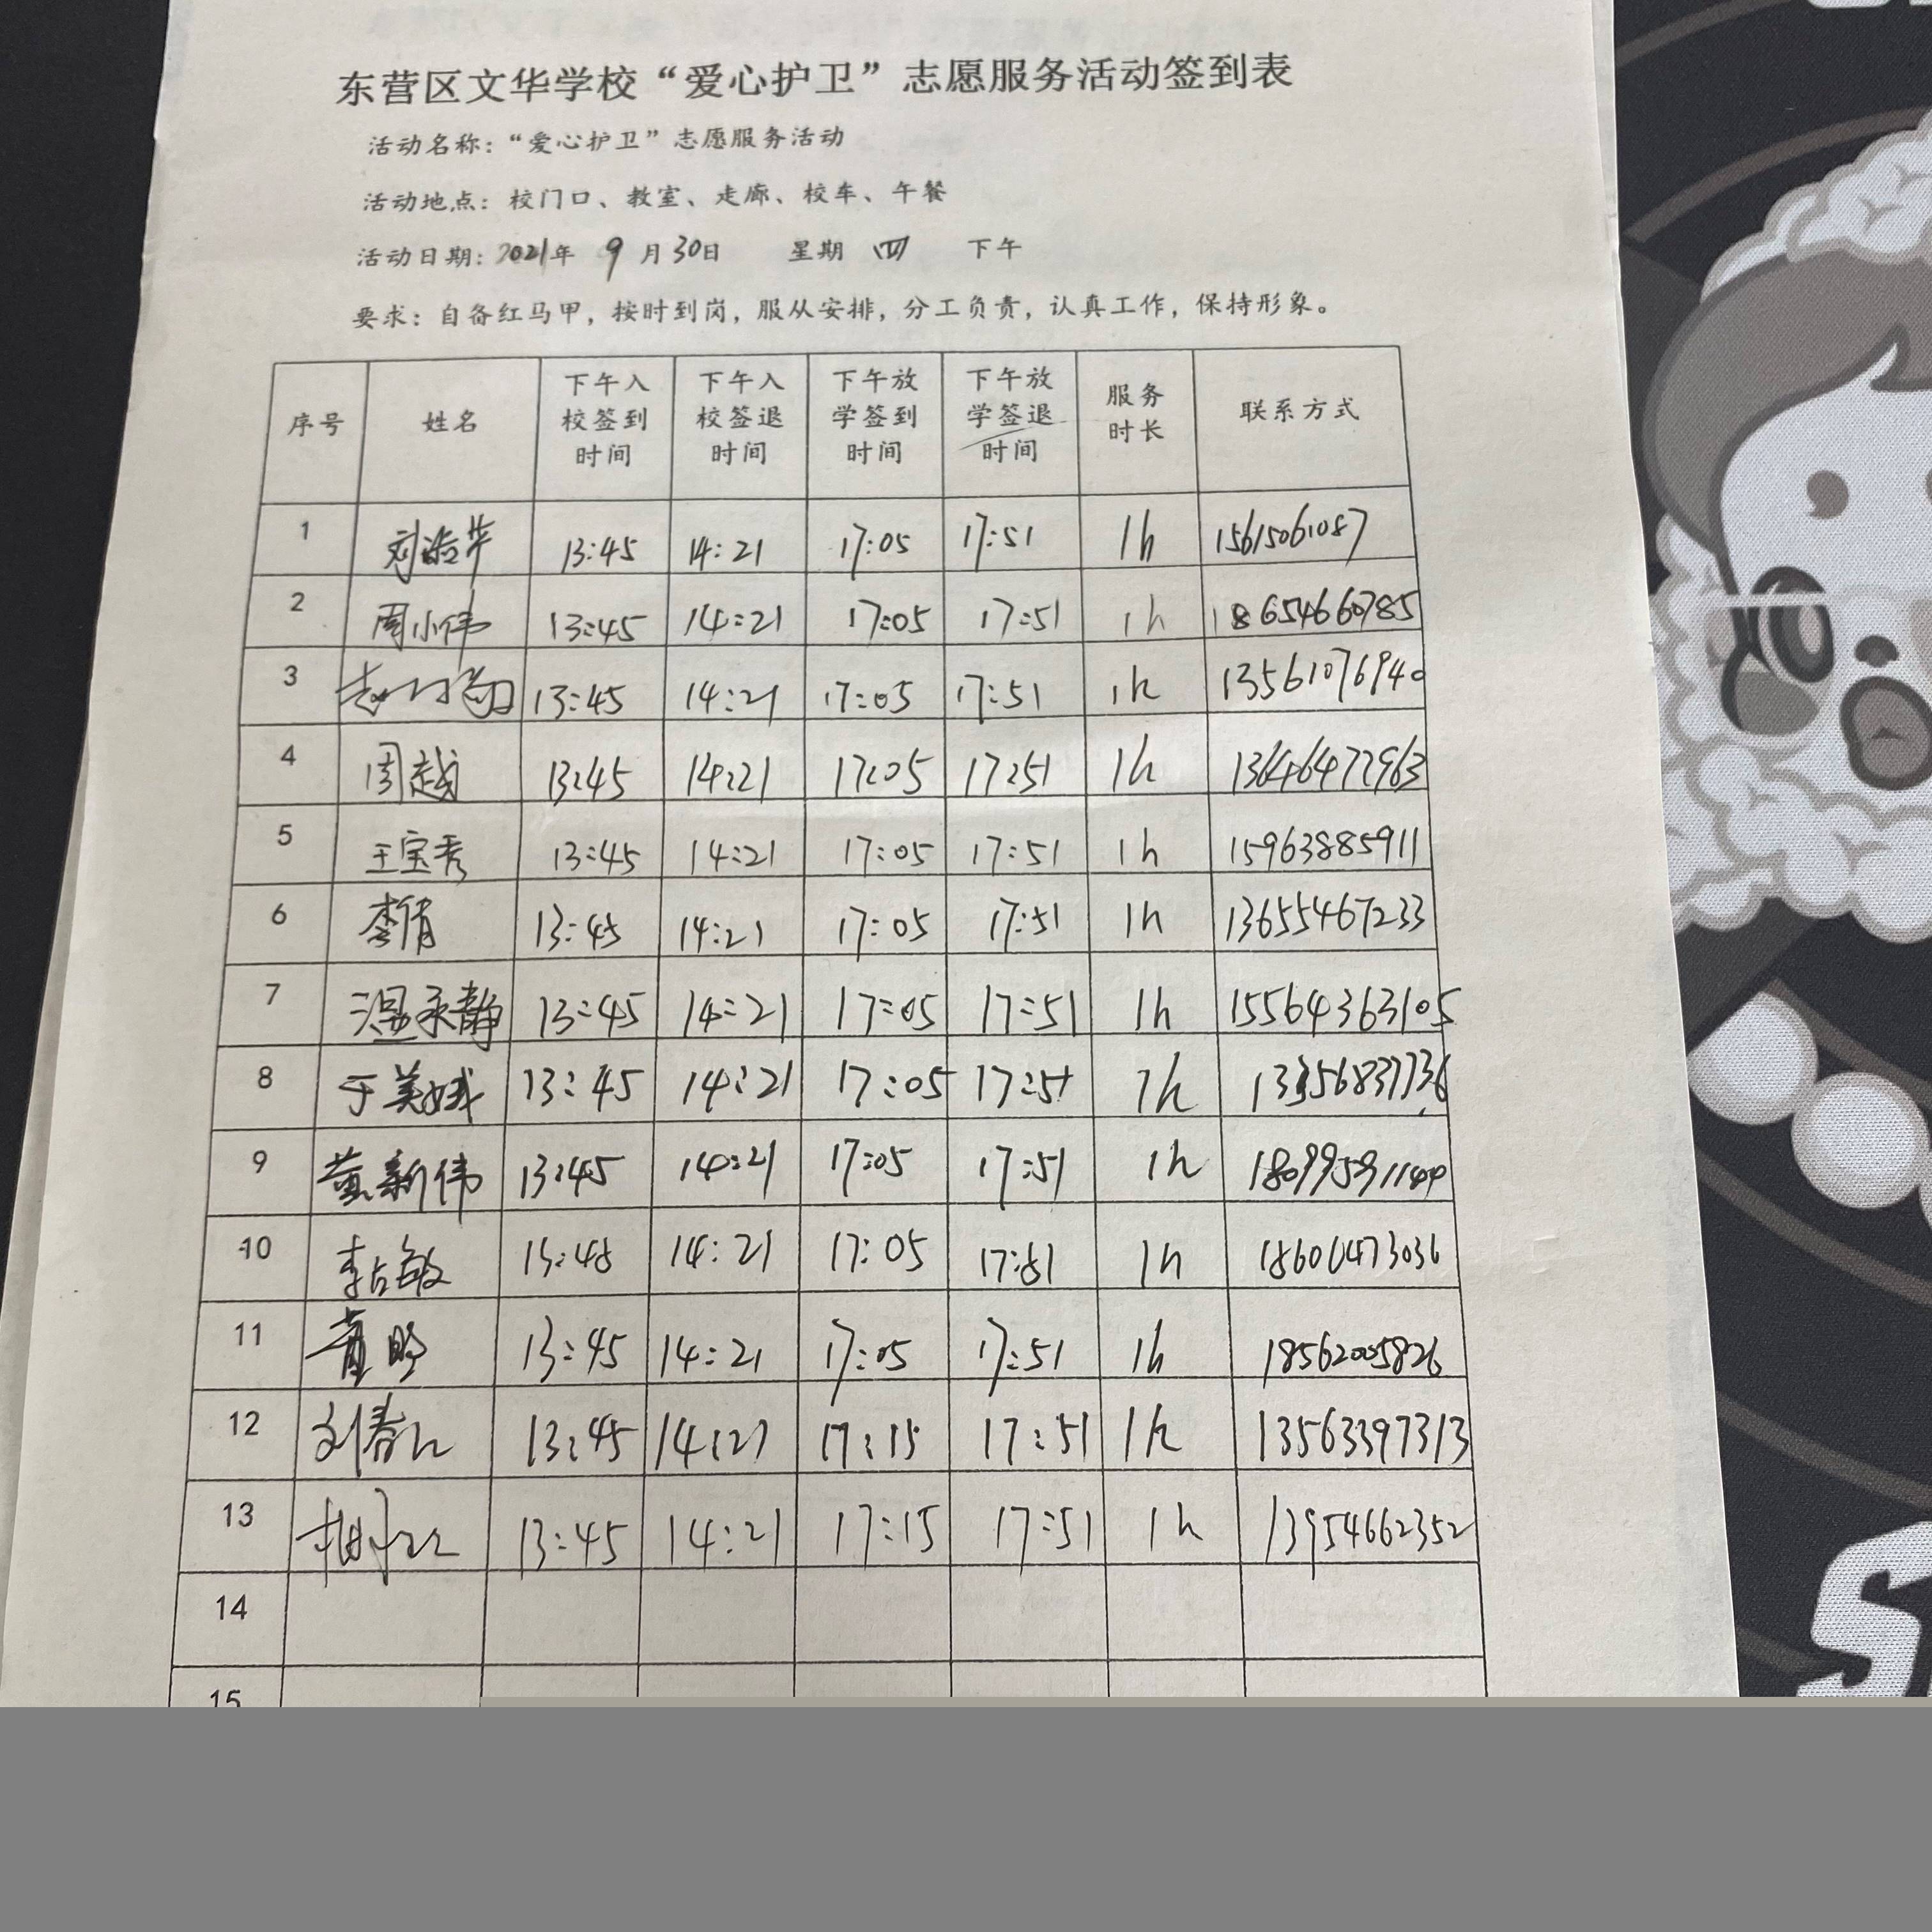 东营区文华学校“爱心护卫”志愿服务活动签到表
活动名称：“爱心护卫”志愿服务活动
活动地点：校门口、教室、走廊、校车、午餐
活动日期：2021年 9 月 30日 星期 四 下午
要求：自备红马甲，按时到岗，服从安排，分工负责，认真工作，保持形象。
序号 姓名 下午入校签到时间 下午入校签退时间 下午放学签到时间 下午放学签退时间 服务时长 联系方式
1 13:45 14:21 17:05 17:51 1h 15615061087
2 周小伟 13:45 14:21 17:05 17:51 1h 18654660785
3 13:45 14:21 17:05 17:51 1h 13561076940
4 周越 13:45 14:21 17:05 17:51 1h 13646472963
5 王宝秀 13:45 14:21 17:05 17:51 1h 15963885911
6 李倩 13:45 14:21 17:05 17:51 1h 13655467233
7 温永静 13:45 14:21 17:05 17:51 1h 15564363105
8 于美娥 13:45 14:21 17:05 17:51 1h
9 董新伟 13:45 14:21 17:05 17:51 1h
10 14:21 17:05 17:51 1h
11 13:45 14:21 17:05 17:51 1h 18562005826
12 13:45 14:21 17:15 17:51 1h 13563397313
13 13:45 14:21 17:15 17:51 1h 13954662352
14
15